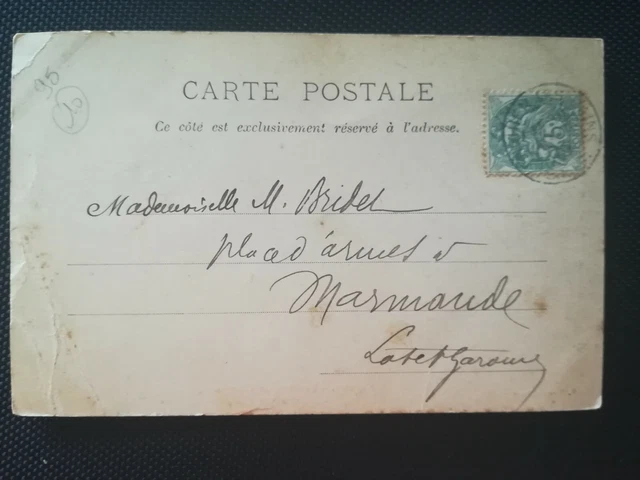 95
10
CARTE POSTALE
Ce côté est exclusivement réservé à l'adresse.
5
Mademoiselle M. Bridet
place d'armes à
Marmande
Lot et Garonne